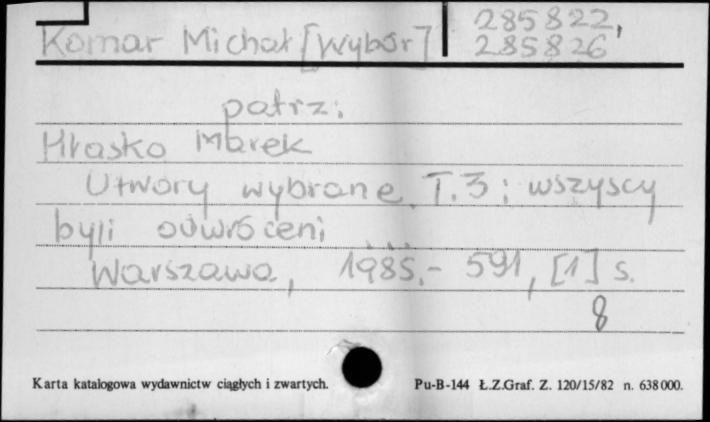 Komar Michał [Wybór] 285822,
285826
patrz:
Hłasko Marek
Utwory wybrane. T.3: wszyscy
byli odwróceni ...
Warszawa, 1985.- 591, [1] s.
8
Karta katalogowa wydawnictw ciągłych i zwartych. Pu-B-144 Ł.Z.Graf. Z. 120/15/82 n. 638000.